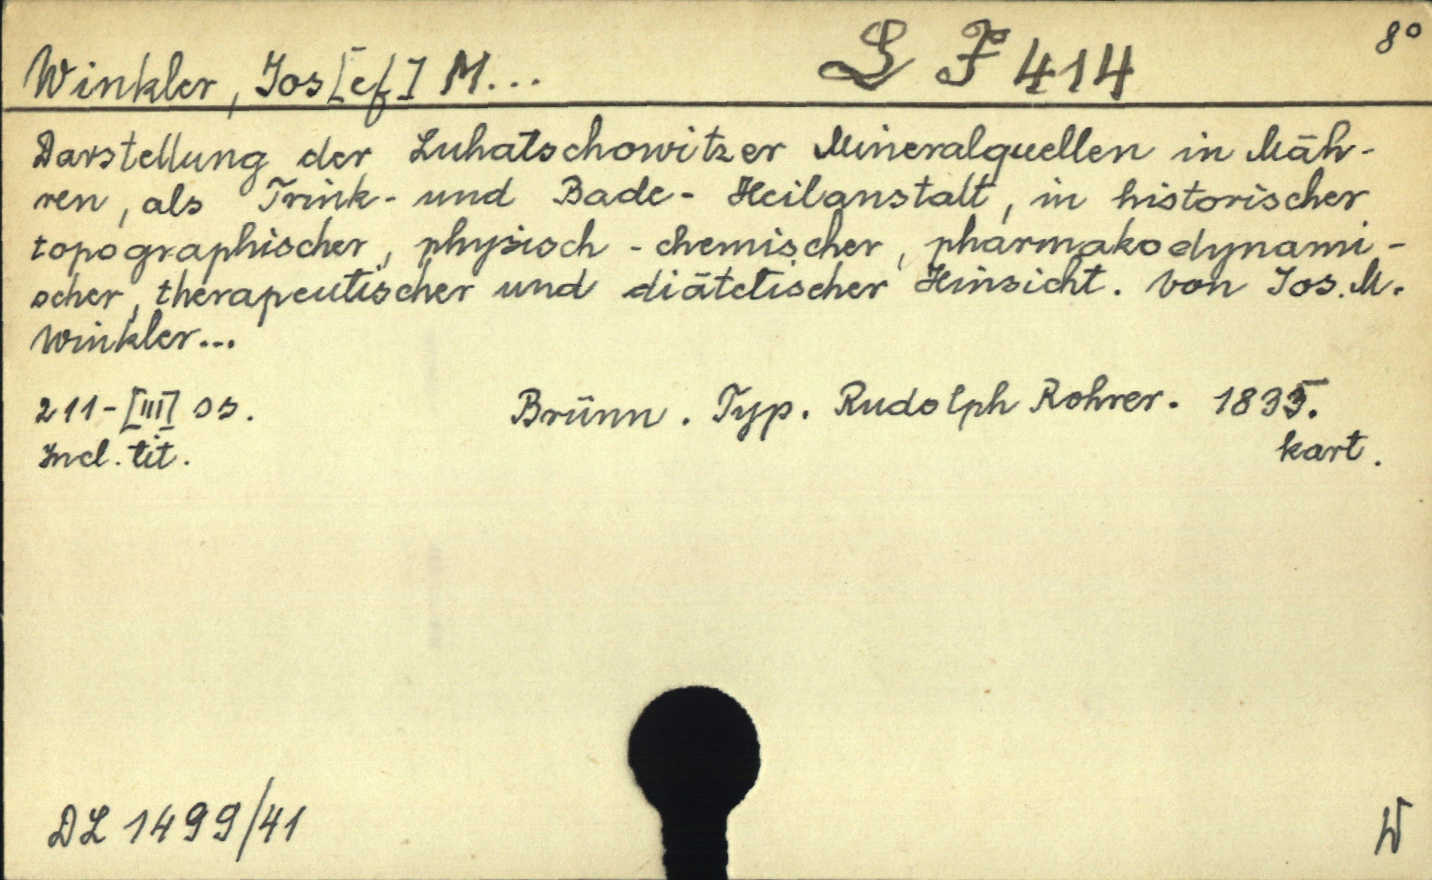 Winkler, Jos[ef] M... L F 414 8°
Darstellung der Luhatschowitzer Mineralquellen in Mäh-
ren, als Trink- und Bade- Heilanstalt, in historischer
topographischer, physisch-chemischer, pharmakodynami-
scher, therapeutischer und diätetischer Hinsicht. Von Jos. M.
Winkler...
211-[III] ss. Brünn. Typ. Rudolph Rohrer. 1835.
Incl. tit. kart.
DL 1499/41 W